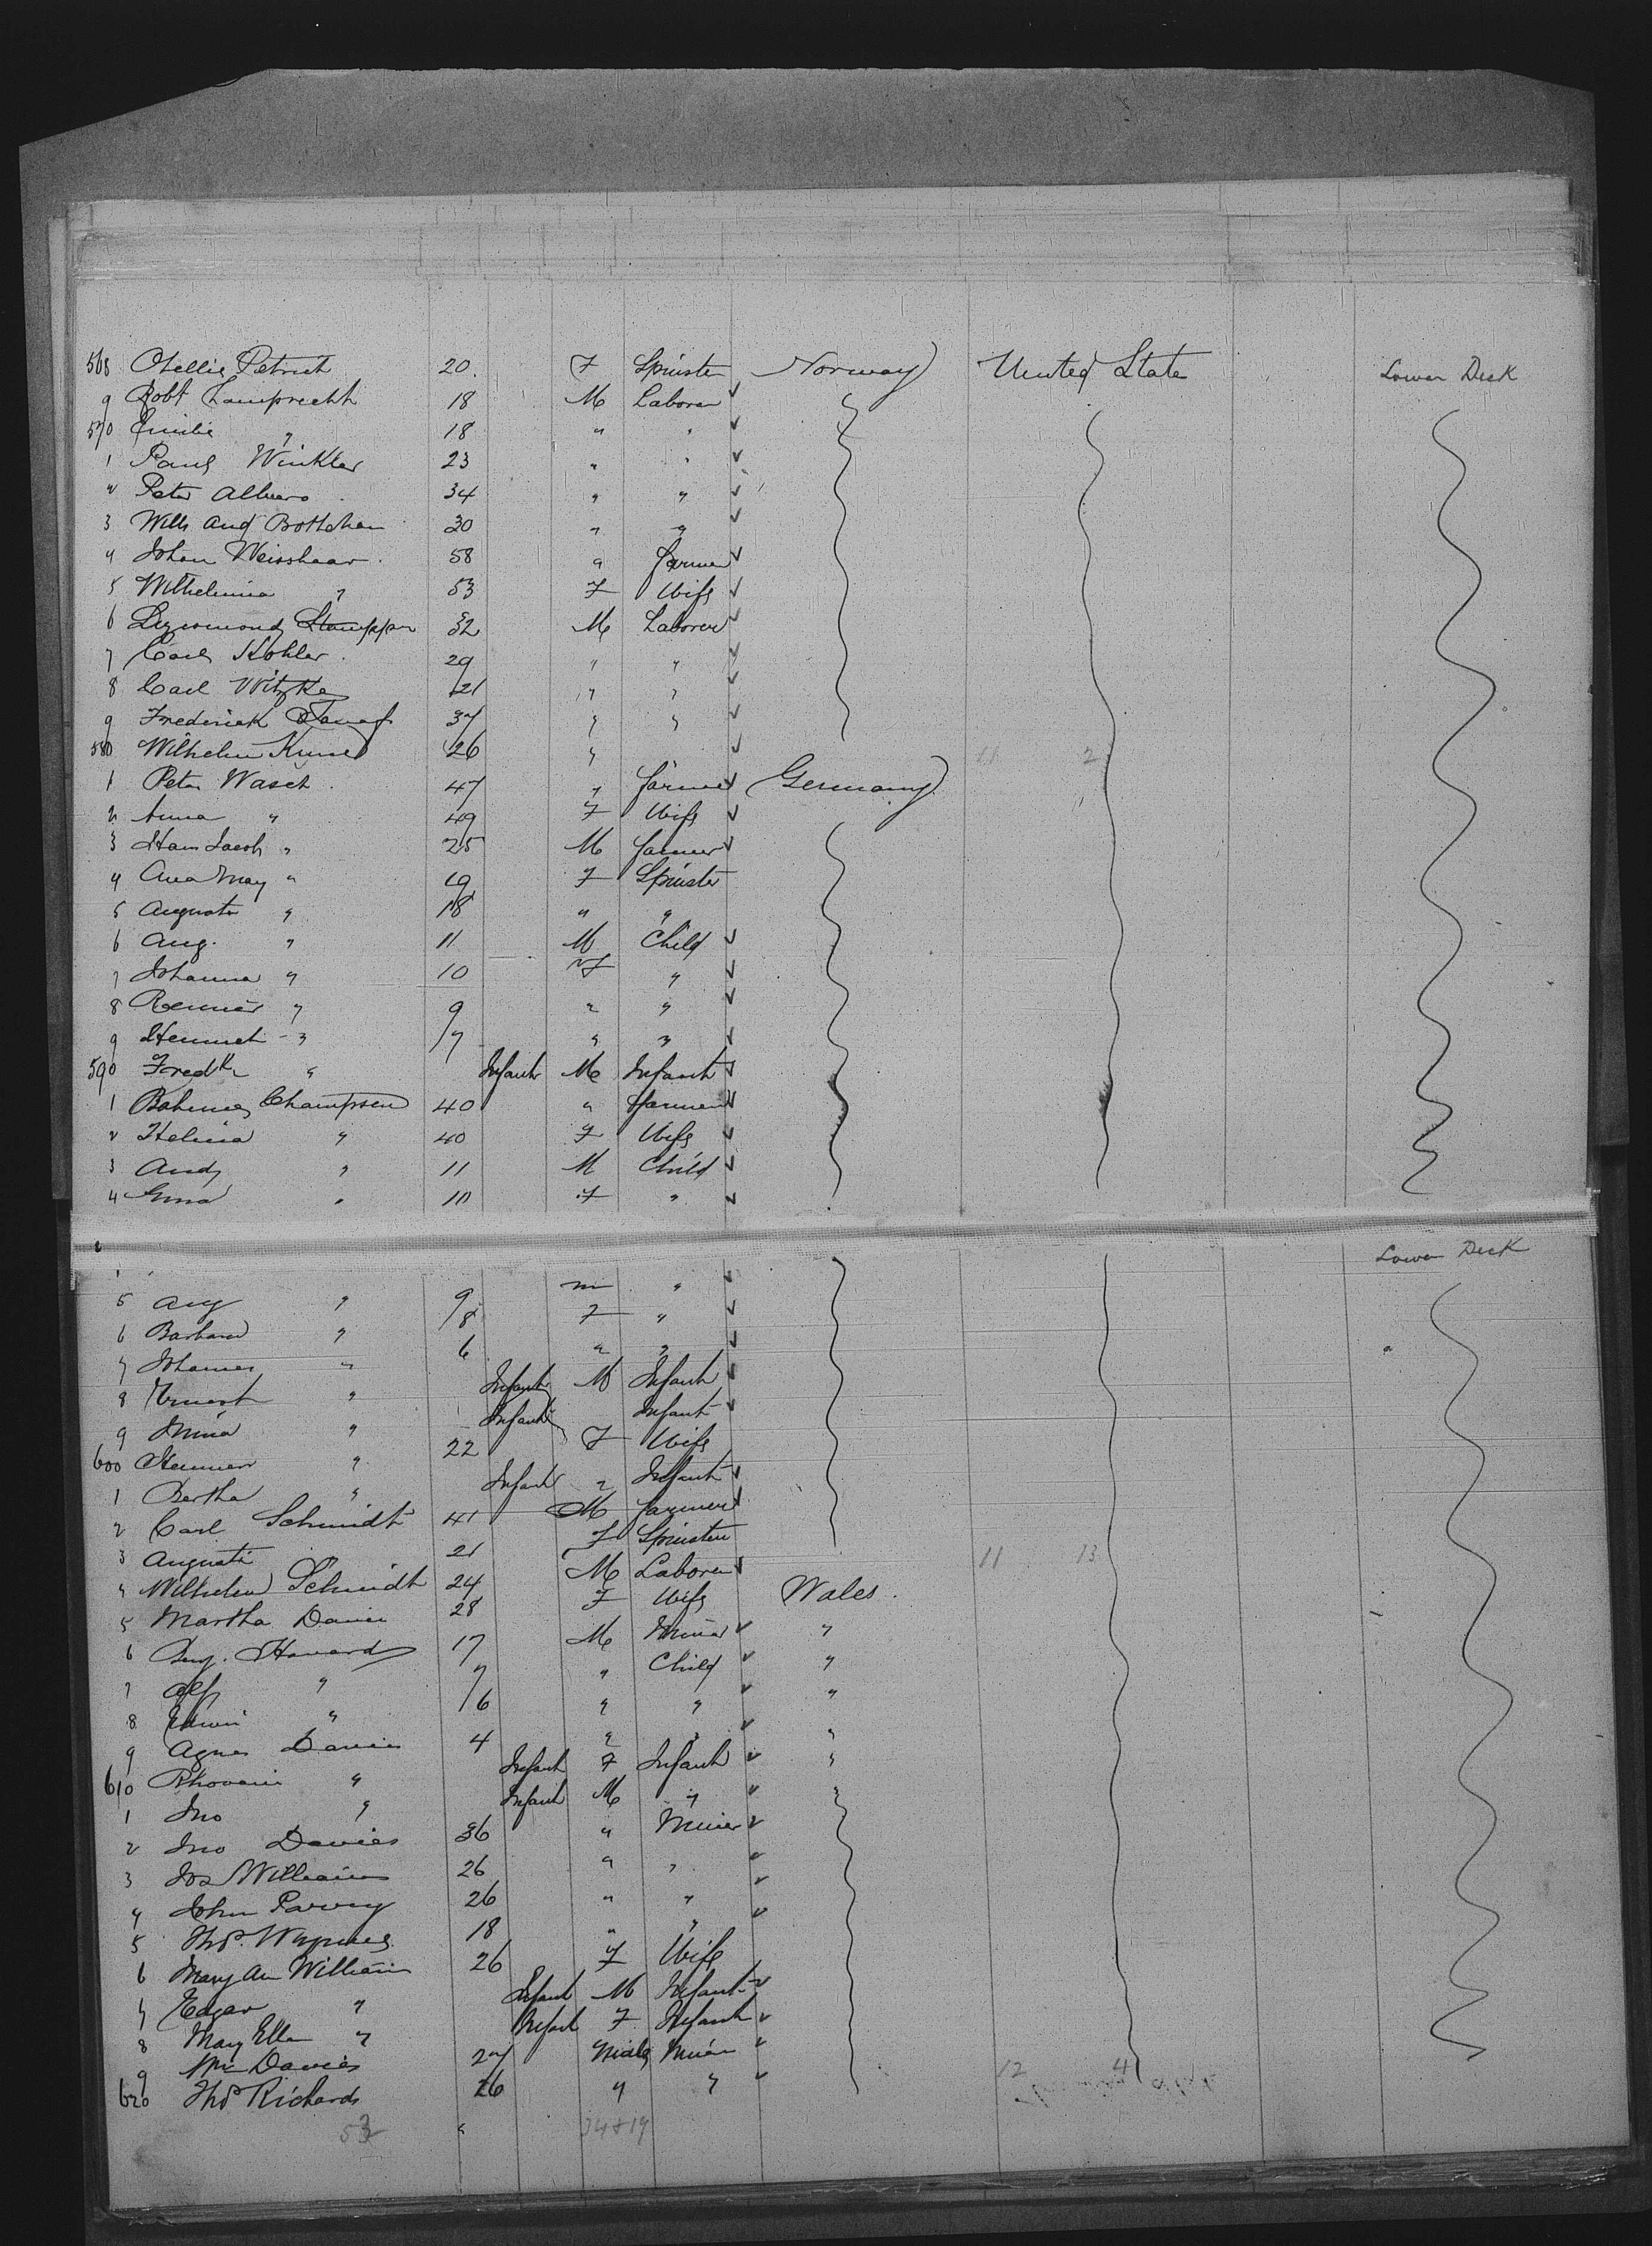 568 Otellie Petrich 20 F Spinster Norway United State Lower Deck
9 Robt Lamprecht 18 M Laborer
570 Emilie " 18 " "
1 Paul Winkler 23 " "
2 Peter Albers 34 " "
3 Wilh Aug Bottcher 30 " "
4 Johan Weisshaar 58 " farmer
5 Wilhelmina " 53 F Wife
6 32 M Laborer
7 Carl Kohler 29 " "
8 Carl Witzke 21 " "
9 Frederick 37 " "
580 Wilhelm Kruse 26 " 11 2
1 Peter Wasch 47 " farmer Germany
2 Anna " 49 F Wife
3 Hans Jacob " 25 M farmer
4 Ana May " 19 F Spinster
5 Augusta " 18 " "
6 Aug. " 11 M Child
7 Johanna " 10 F "
8 " 9 " "
9 " 7 " "
590 Fredk " Infant M Infant
1 Champsen 40 " farmer
2 Helina " 40 F Wife
3 Andr " 11 M Child
4 " 10 F "
Lower Deck
5 Aug " 9 m "
6 Barbara " 8 F "
7 Johannes " 6 " "
8 Ernest " Infant M Infant
9 Mina " Infant Infant
600 " 22 F Wife
1 Bertha " Infant " Infant
2 Carl Schmidt 41 M farmer
3 Augusti 21 F Spinster
4 Wilhelm Schmidt 24 M Laborer 11 13
5 Martha Davies 28 F Wife Wales.
6 Howard 17 M Miner "
7 Alf " 7 " Child "
8 Edwin " 6 " " "
9 Agnes Davies 4 " " "
610 " Infant F Infant "
1 Jno " Infant M " "
2 Jno Davies 36 " Miner
3 Jos Williams 26 " "
4 John 26 " "
5 Thos. 18 " "
6 Mary Ann William 26 F Wife
7 Edgar " Infant M Infant
8 Mary Ellen " Infant F Infant
9 Wm Davies 27 Male Miner
620 Thos Richards 26 " " 12 4
53 34+19